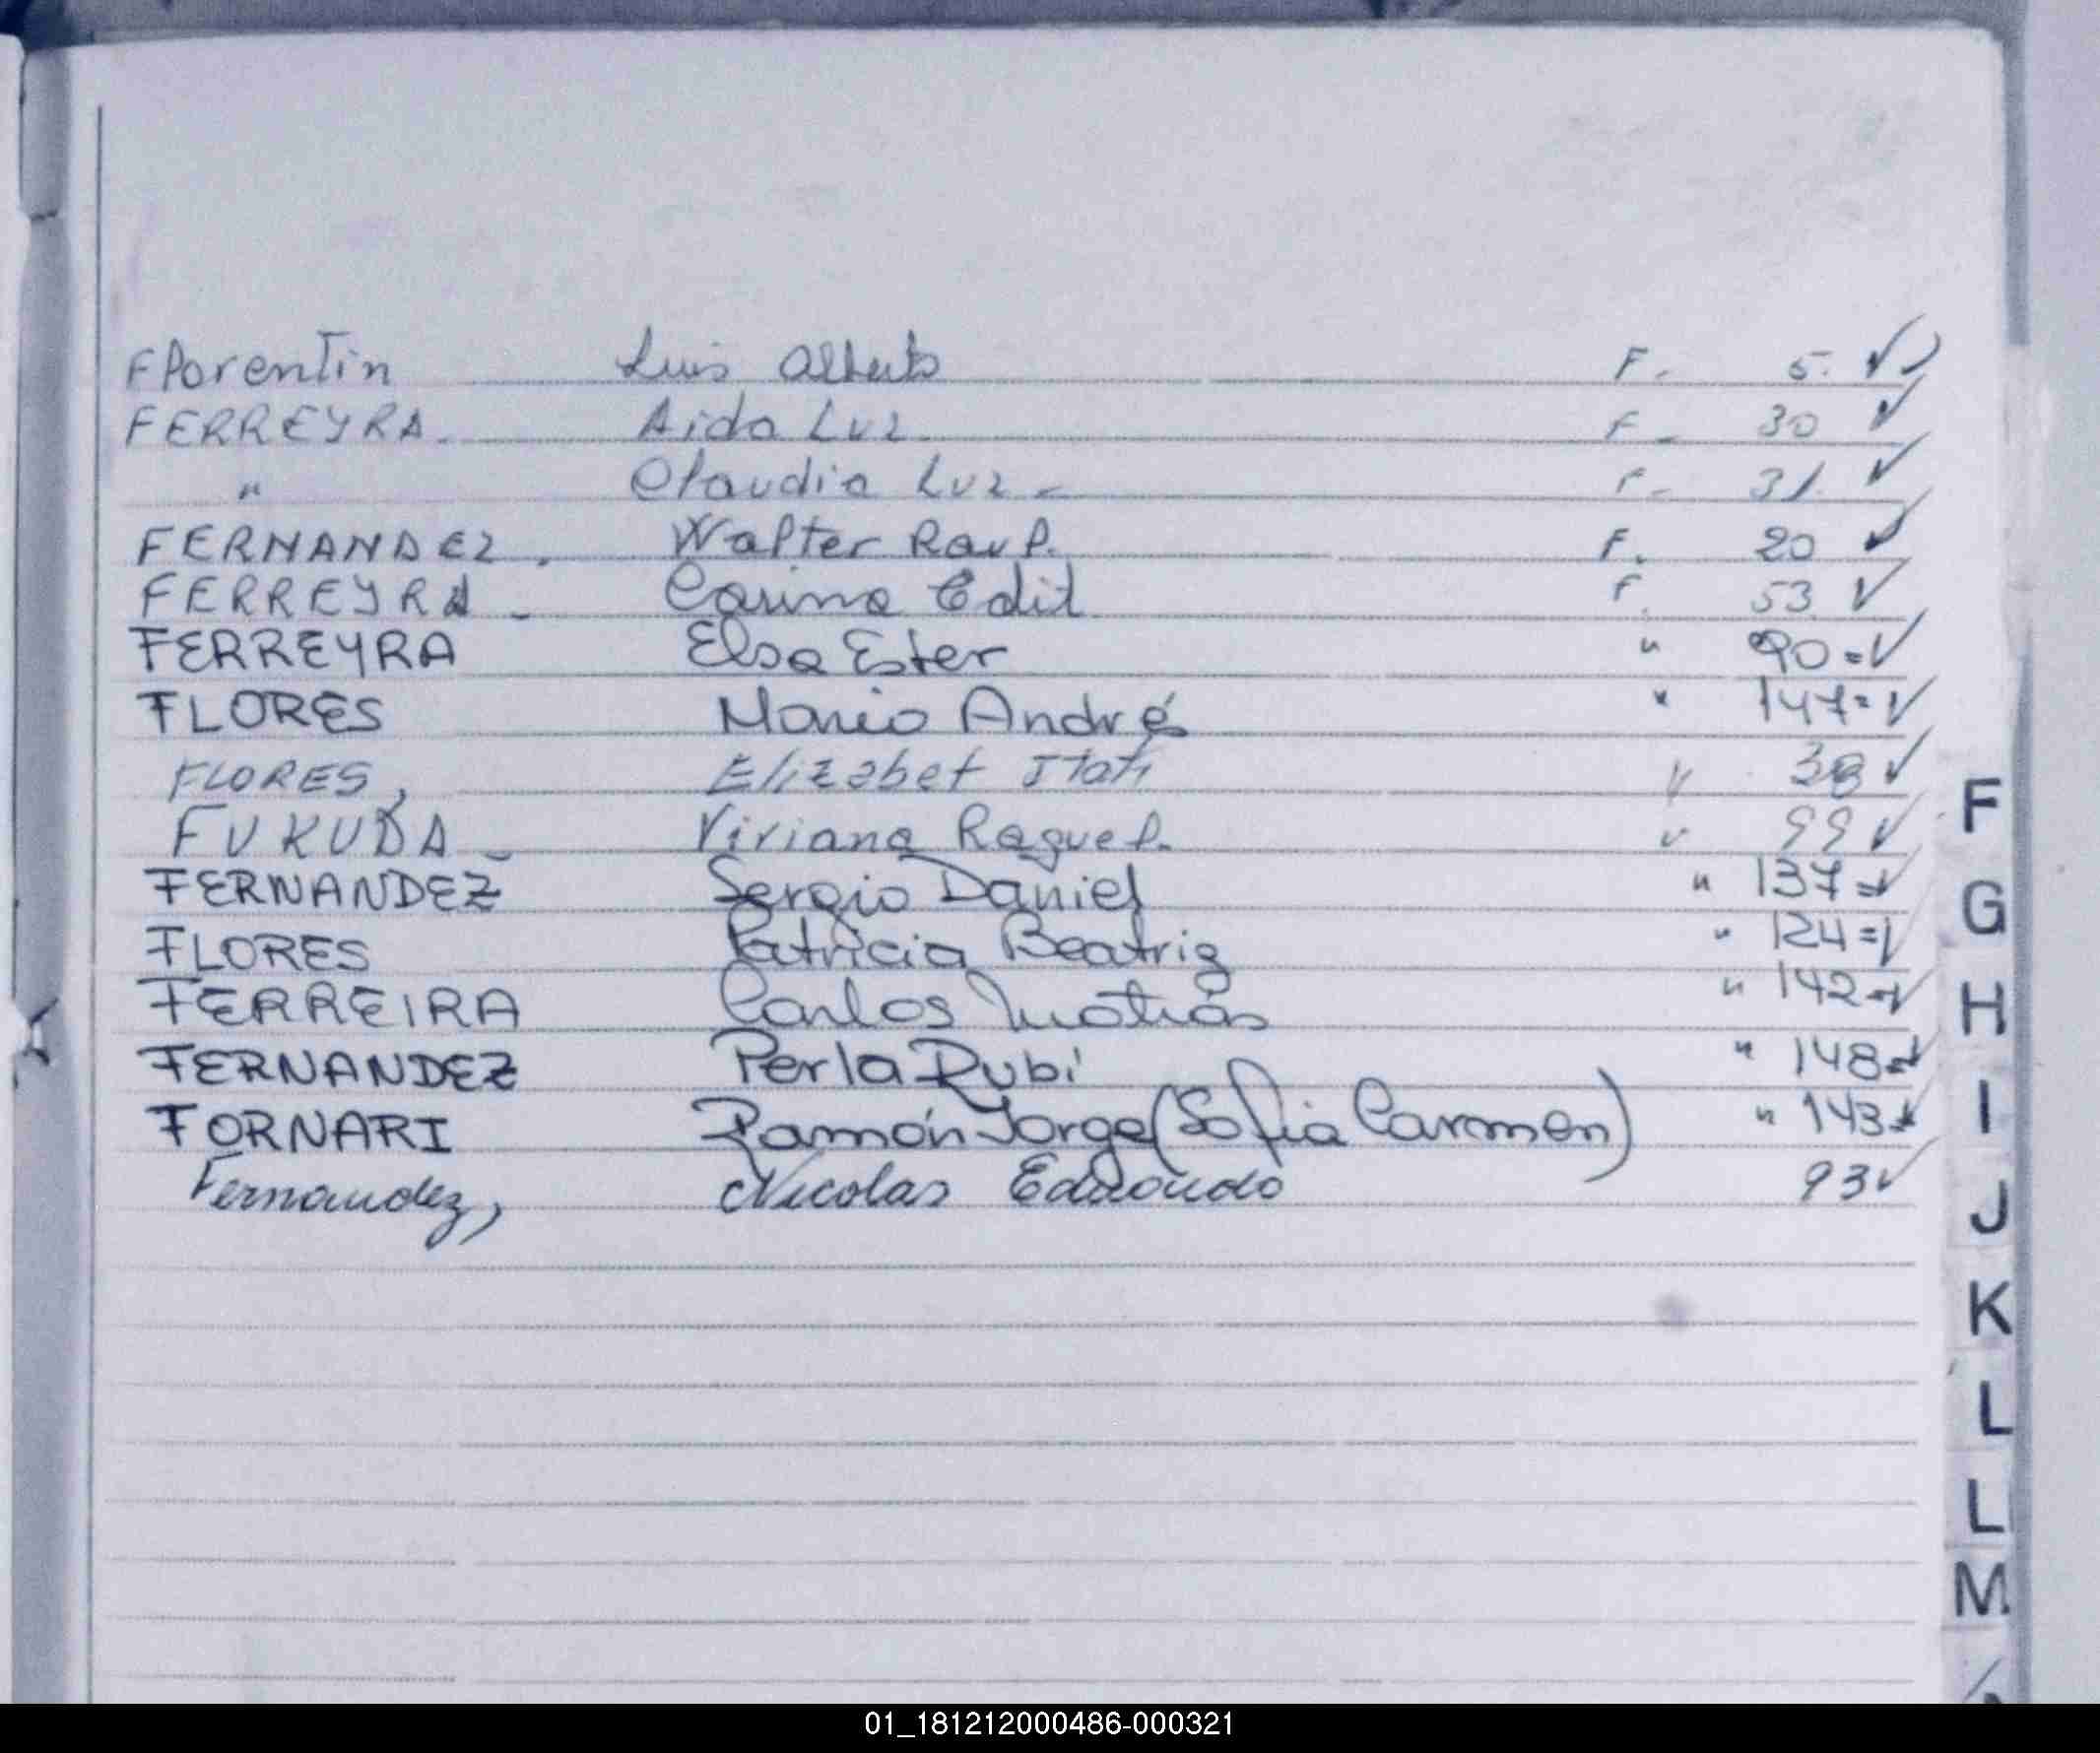 Florentin Luis Alberto F. 5. ✓
FERREYRA. Aida Luz F - 30 ✓
" Claudia Luz - F - 31. ✓
FERNANDEZ. Walter Raul. F. 20 ✓
FERREYRA - Carina Edit F. 53 ✓
FERREYRA Elsa Ester " 90 = ✓
FLORES Mario André " 147 = ✓
FLORES, Elizabet Itatí " 38 ✓
FUKUDA - Viviana Raquel. " 99 ✓
FERNANDEZ Sergio Daniel " 137 = ✓
FLORES Patricia Beatriz " 124 = ✓
FERREIRA Carlos Matías " 142 = ✓
FERNANDEZ Perla Rubí " 148 = ✓
FORNARI Ramón Jorge (Sofia Carmen) " 143 ✓
Fernandez, Nicolas Edmondo 93 ✓
F
G
H
I
J
K
L
L
M
01_181212000486-000321